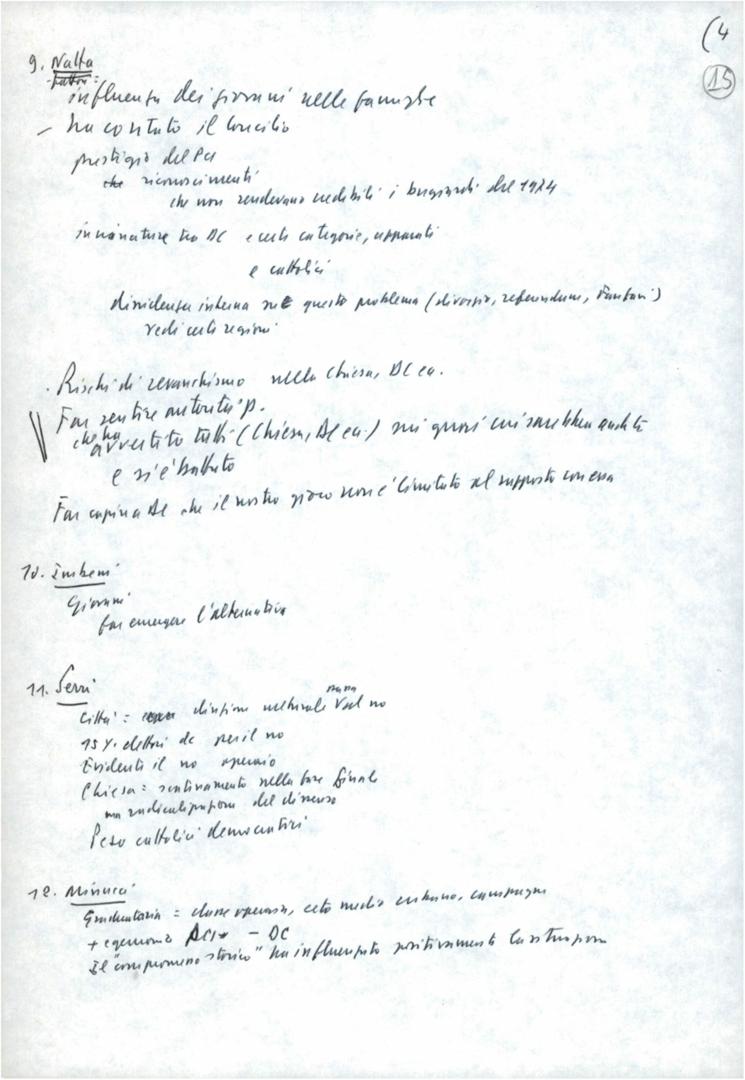 (4
15
9. Natta
fattori:
influenza dei giovani nelle famiglie
– ha contato il Concilio
prestigio del PCI
che riconoscimenti
che non rendevano credibili i bugiardi del 1924
tra DC e certi categorie, apparati
e cattolici
dissidenza interna su questo problema (divorzio, referendum, Fanfani)
vedi certi regioni
. Rischi di revanchismo nella Chiesa, DC ecc.
Far sentire autorità p.
che ha avvertito tutti (Chiesa, DC ecc.) sui guasti cui sarebbero andati
e si è battuto
Far capire a DC che il nostro gioco non è limitato al rapporto con essa
10. Imbeni
Giovani
far emergere l'alternativa
11. Serri
Città = culturale massa del no
15% elettori dc per il no
Evidente il no operaio
Chiesa = nella fase finale
ma radicalizzazione del discorso
Peso cattolici democratici
12. Minucci
Graduatoria = classe operaia, ceto medio urbano, campagne
+ egemonia PCI – DC
Il "compromesso storico" ha influenzato positivamente